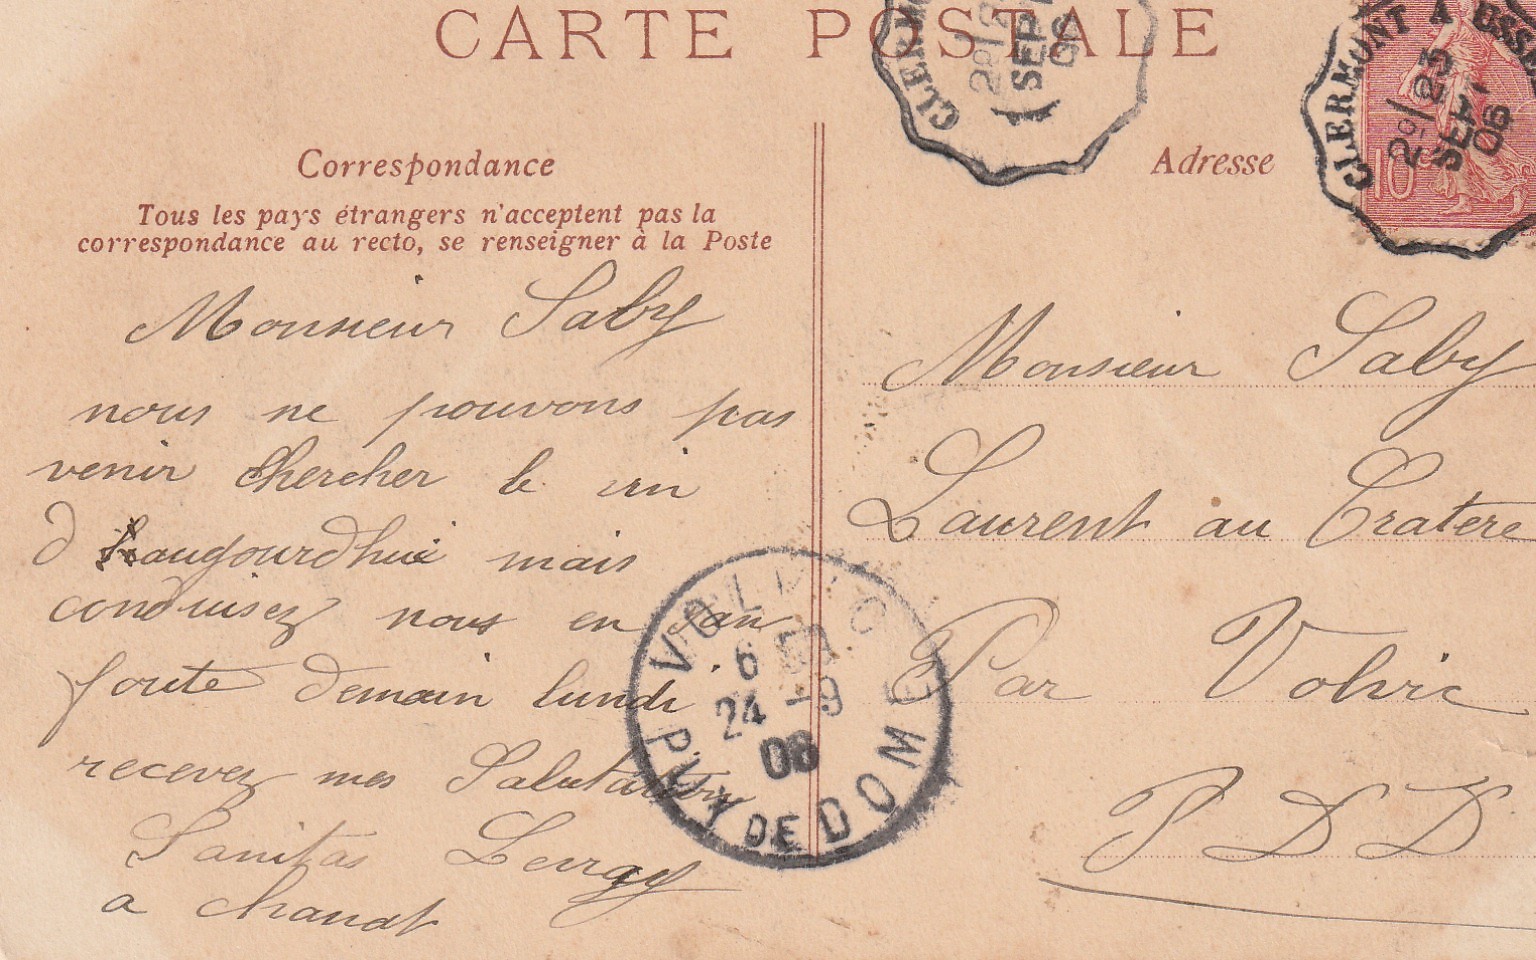 CARTE POSTALE
Correspondance
Tous les pays étrangers n'acceptent pas la
correspondance au recto, se renseigner à la Poste
Monsieur Saby
nous ne pouvons pas
venir chercher le vin
d augourdhui mais
conduisez nous en
demain lundi
recevez mes Salutation
Sanitas
a chanat
Adresse
Monsieur Saby
Laurent au Cratere
Par Volvic
P D D
CLERMO
2º/2
SEPT
06
CLERMONT A ESSE
2º/23
SEPT
06
10
VOLVIC
6
24 -9
06
PUY DE DOME